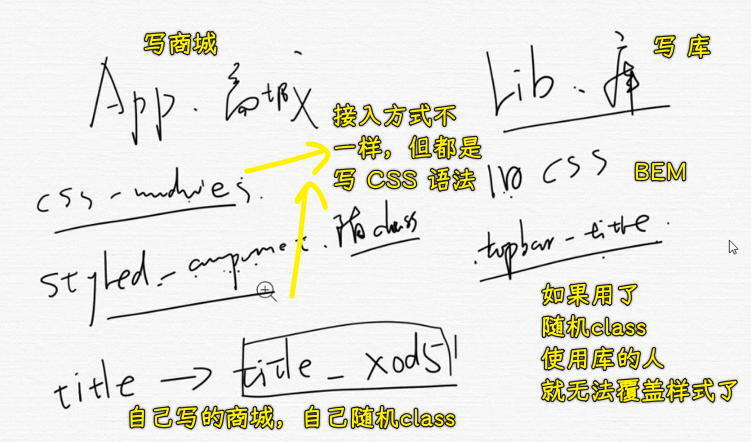 写商城
App.
接入方式不
一样，但都是
写 CSS 语法
css-modules.
styled-component. 随 class
title → title_xod51
自己写的商城，自己随机class
写 库
Lib、库
CSS BEM
.topbar-title.
如果用了
随机class
使用库的人
就无法覆盖样式了